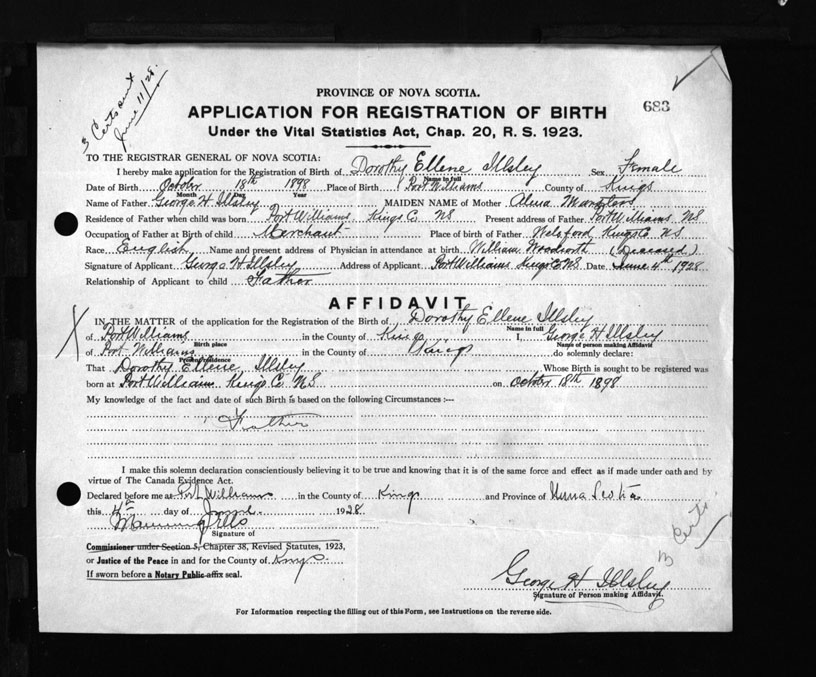 3 Certs sent
June 11/28.
683
PROVINCE OF NOVA SCOTIA.
APPLICATION FOR REGISTRATION OF BIRTH
Under the Vital Statistics Act, Chap. 20, R. S. 1923.
TO THE REGISTRAR GENERAL OF NOVA SCOTIA:
I hereby make application for the Registration of Birth of Dorothy Ellene Illsley Sex Female
Name in full
Date of Birth October 18th 1898 Place of Birth Port Williams County of Kings
Month Day Year
Name of Father George H. Illsley MAIDEN NAME of Mother Alma
Residence of Father when child was born Port Williams, Kings Co NS Present address of Father Port Williams NS
Occupation of Father at Birth of child Merchant Place of birth of Father Welsford, Kings Co NS
Race English Name and present address of Physician in attendance at birth William Woodworth (Deceased)
Signature of Applicant George H Illsley Address of Applicant Port Williams Kings Co NS Date June 4th 1928
Relationship of Applicant to child Father
AFFIDAVIT
IN THE MATTER of the application for the Registration of the Birth of Dorothy Ellene Illsley
Name in full
of Port Williams in the County of Kings I, George H Illsley
Birth place Name of person making Affidavit
of Port Williams in the County of Kings do solemnly declare:
Present residence
That Dorothy Ellene Illsley Whose Birth is sought to be registered was
born at Port Williams Kings Co. NS on October 18th 1898
My knowledge of the fact and date of such Birth is based on the following Circumstances :—
Father
I make this solemn declaration conscientiously believing it to be true and knowing that it is of the same force and effect as if made under oath and by
virtue of The Canada Evidence Act.
Declared before me at Port Williams in the County of Kings and Province of Nova Scotia
this 4th day of June 1928
Manning Ells
Signature of
Commissioner under Section 5, Chapter 38, Revised Statutes, 1923,
or Justice of the Peace in and for the County of Kings
If sworn before a Notary Public affix seal.
3 Certs.
George H Illsley
Signature of Person making Affidavit.
For Information respecting the filling out of this Form, see Instructions on the reverse side.